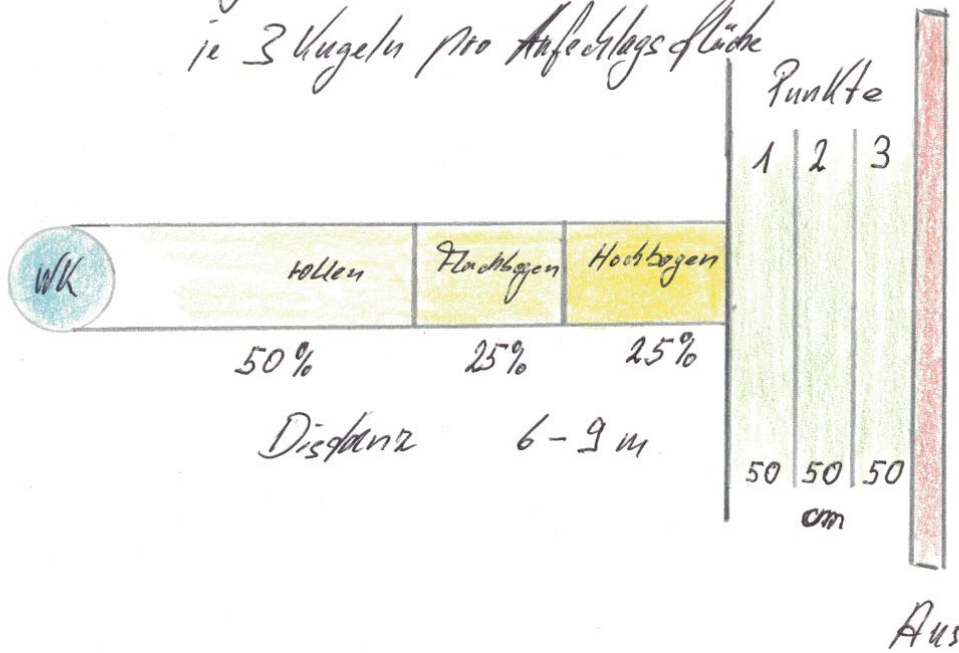 je 3 Kugeln pro Aufschlagsfläche
Punkte
1 2 3
WK rollen Flachbogen Hochbogen
50% 25% 25%
Distanz 6-9 m
50 50 50
cm
Aus